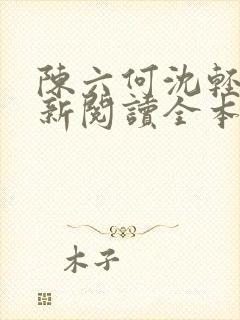 陳六何沈輕
新閱讀全本
木子